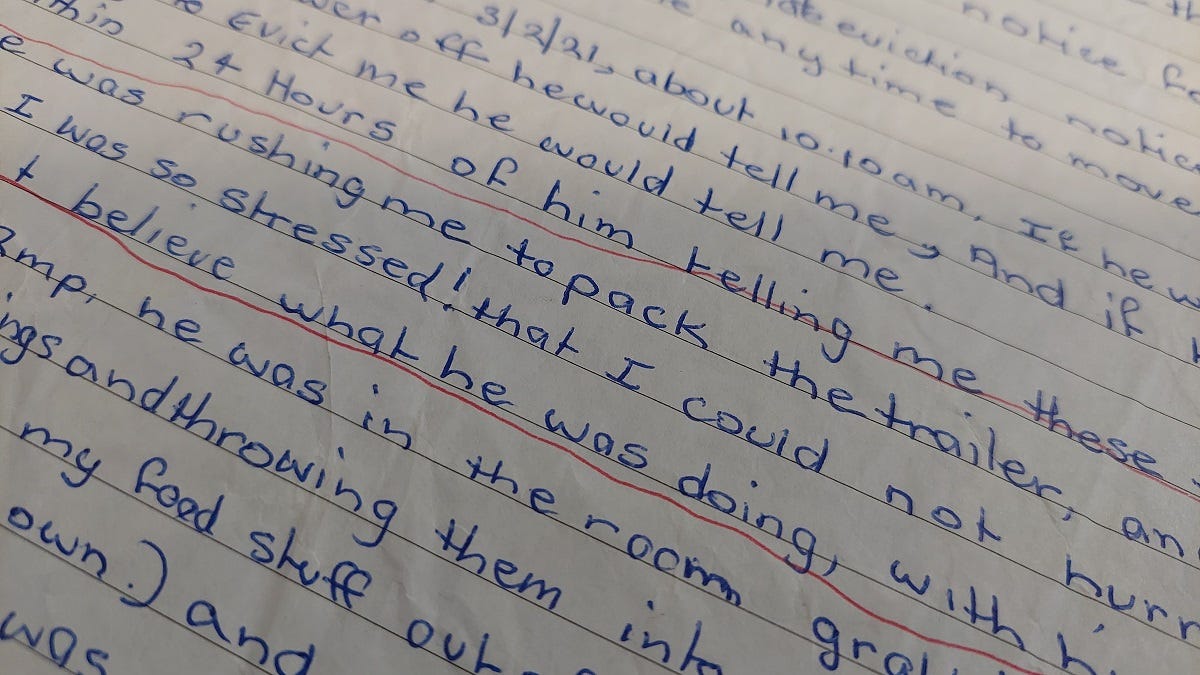 notice
eviction notice
any time to move
3/2/21, about 10.10am, If he w
off hewould tell me, And if
Evict me he would tell me.
thin 24 Hours of him telling me these
e was rushing me to pack the trailer, an
I was so stressed! that I could not hurr
t believe what he was doing, with h
mp, he was in the room gra
ngs andthrowing them into
my food stuff out
own.) and
was